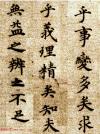 乎事變多夫求
乎義理精矣知夫
無益之辨之不足